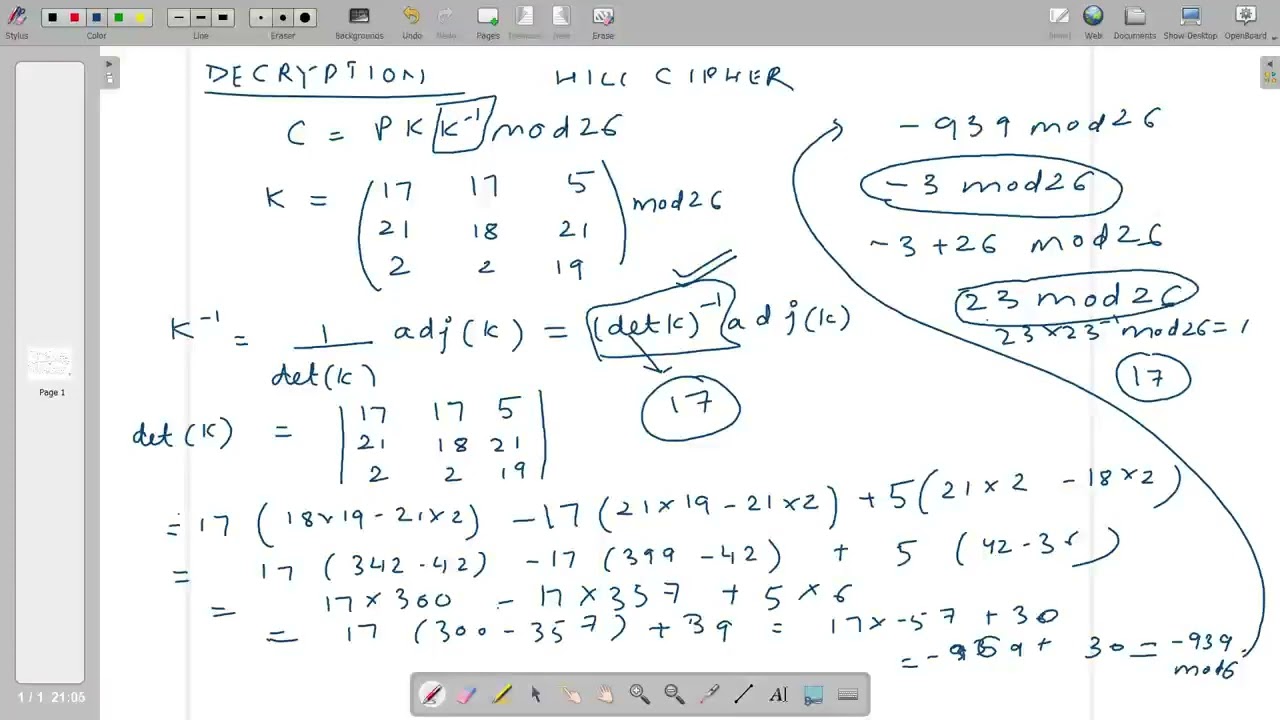 Stylus Color Line Eraser Backgrounds Undo Pages Erase Web Documents Show-Desktop OpenBoard
DECRYPTION HILL CIPHER
C = P K K⁻¹ mod 26
K = ( 17 17 5
21 18 21
2 2 19 ) mod 26
K⁻¹ = 1 / det(K) adj(K) = (det K)⁻¹ adj(K)
17
det(K) = | 17 17 5
21 18 21
2 2 19 |
= 17 (18×19 - 21×2) - 17 (21×19 - 21×2) + 5 (21×2 - 18×2)
= 17 (342 - 42) - 17 (399 - 42) + 5 (42 - 36)
= 17×300 - 17×357 + 5×6
= 17 (300 - 357) + 39 = 17×-57 + 30
= -969 + 30 = -939
mod6
-939 mod 26
-3 mod 26
-3 + 26 mod 26
23 mod 26
23×23⁻¹ mod 26 = 1
17
Page 1
1 / 1 21:05